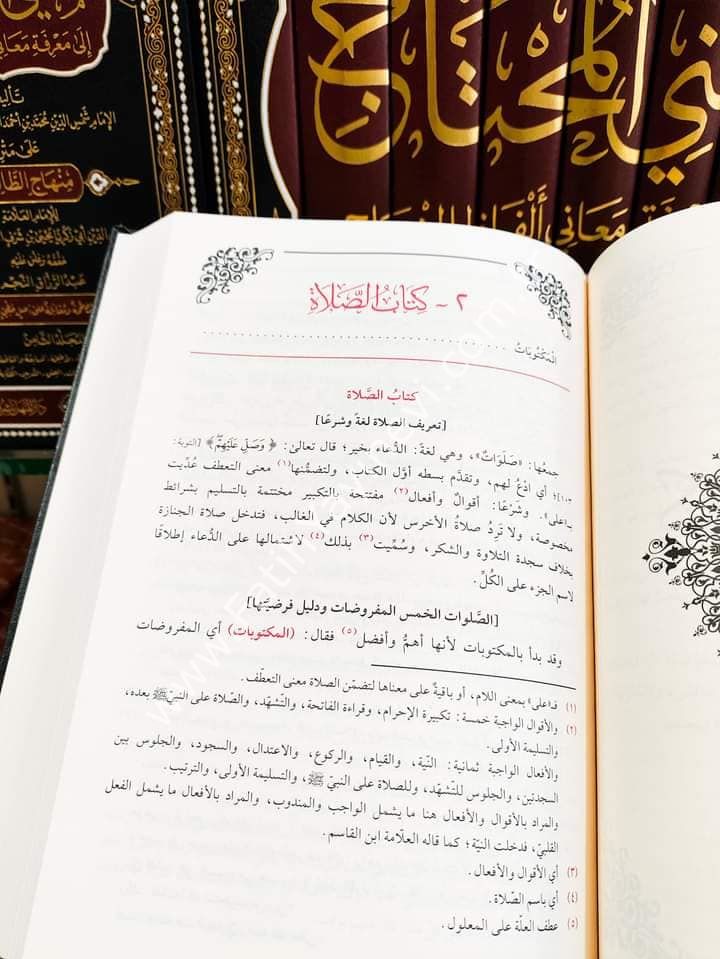 إلى معرفة معاني
تأليف
الإمام شمس الدين محمد بن أحمد
على متن
منهاج الطالبين
للإمام العلامة
مغني المحتاج
معاني ألفاظ المنهاج
٢ - كِتَابُ الصَّلَاة
المَكْتُوبَاتُ ......................................
كتابُ الصَّلاة
[تعريف الصلاة لغة وشرعًا]
جمعُها: «صَلَواتٌ»، وهي لغةً: الدُّعاء بخير؛ قال تعالىٰ: ﴿وَصَلِّ عَلَيْهِمْ﴾ [التوبة:
١٠٣]؛ أي ادْعُ لهم، وتقدَّم بسطه أوَّل الكتاب، ولتضمُّنها(١) معنى التعطف عُدِّيت
بـ«على». وشرعًا: أقوالٌ وأفعال(٢) مفتتحة بالتكبير مختتمة بالتسليم بشرائط
مخصوصة، ولا تَرِدُ صلاةُ الأخرس لأن الكلام في الغالب، فتدخل صلاة الجنازة
بخلاف سجدة التلاوة والشكر، وسُمِّيت(٣) بذلك(٤) لاشتمالها على الدُّعاء إطلاقًا
لاسم الجزء على الكُلِّ.
[الصَّلوات الخمس المفروضات ودليل فرضيَّتها]
وقد بدأ بالمكتوبات لأنها أهمُّ وأفضل(٥) فقال: (المكتوبات) أي المفروضات
(١) فـ«على» بمعنى اللام، أو باقيةٌ على معناها لتضمّن الصلاة معنى التعطّف.
(٢) والأقوال الواجبة خمسة: تكبيرة الإحرام، وقراءة الفاتحة، والتّشهّد، والصّلاة على النبيّ ﷺ بعده،
والتسليمة الأولى.
والأفعال الواجبة ثمانية: النّية، والقيام، والركوع، والاعتدال، والسجود، والجلوس بين
السجدتين، والجلوس للتّشهّد، وللصلاة على النبيّ ﷺ، والتسليمة الأولى، والترتيب.
والمراد بالأقوال والأفعال هنا ما يشمل الواجب والمندوب، والمراد بالأفعال ما يشمل الفعل
القلبيّ، فدخلت النيّة؛ كما قاله العلّامة ابن القاسم.
(٣) أي الأقوال والأفعال.
(٤) أي باسم الصّلاة.
(٥) عطف العلّة على المعلول.